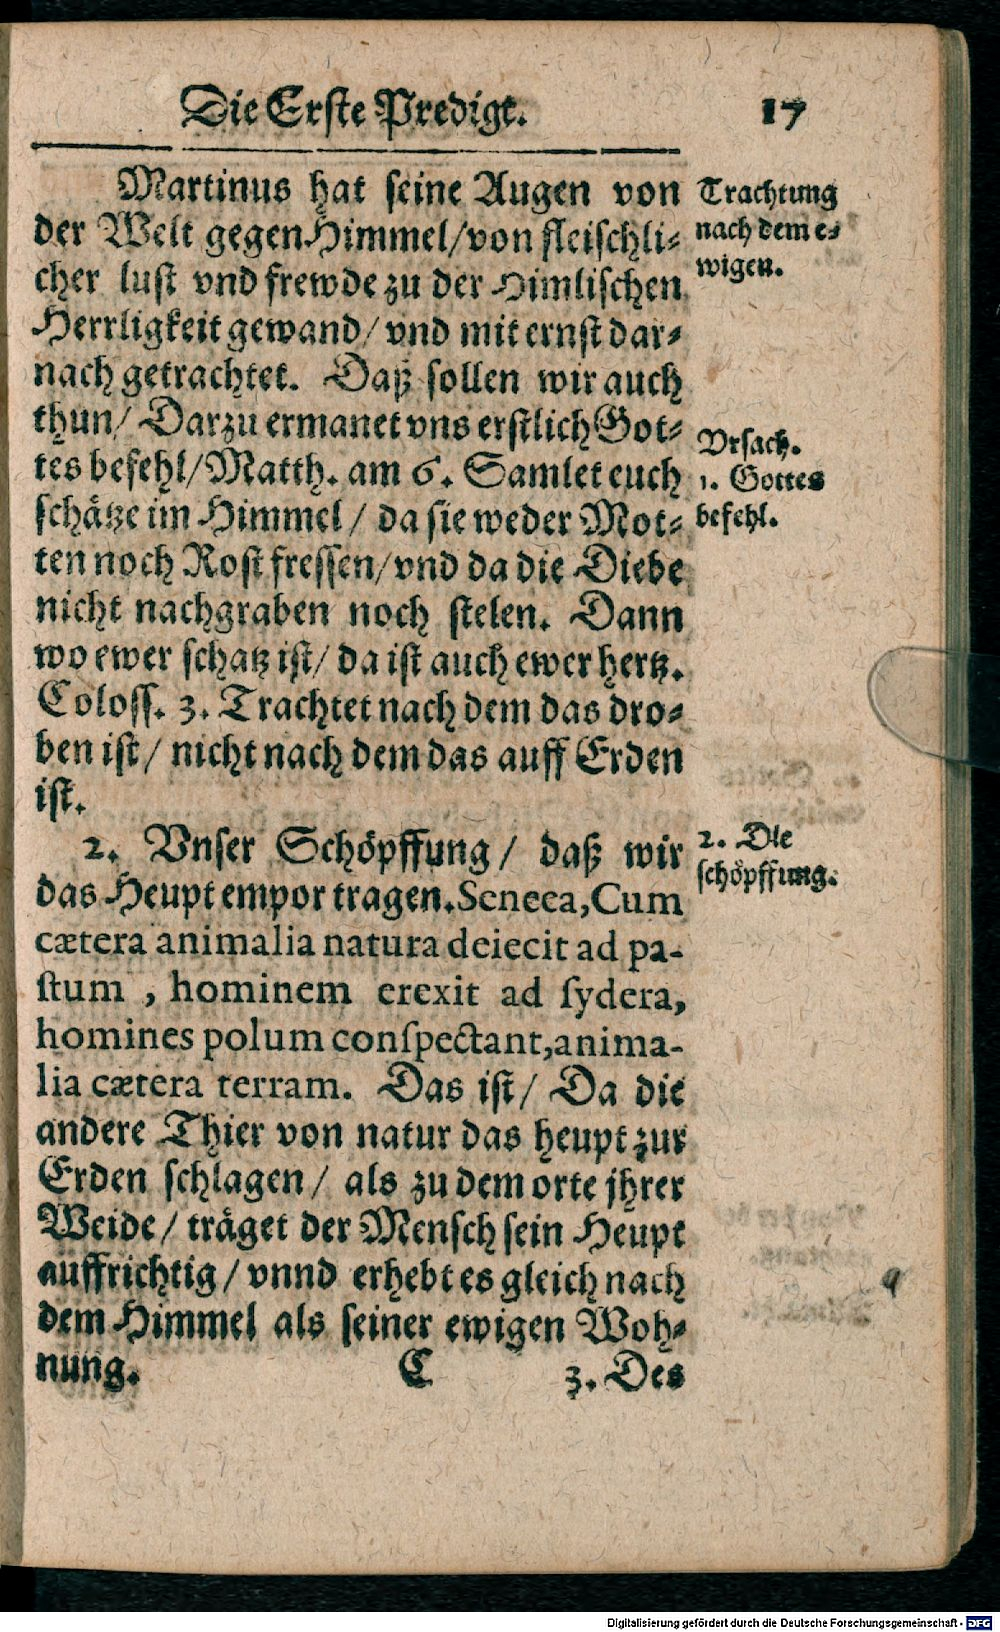 Die Erste Predigt. 17
Martinus hat seine Augen von
der Welt gegen Himmel/von fleischli⸗
cher lust vnd frewde zu der Himlischen
Herrligkeit gewand/ vnd mit ernst dar⸗
nach getrachtet. Daß sollen wir auch
thun/ Darzu ermanet vns erstlich Got⸗
tes befehl/Matth. am 6. Samlet euch
schätze im Himmel/ da sie weder Mot⸗
ten noch Rost fressen/vnd da die Diebe
nicht nachgraben noch stelen. Dann
wo ewer schatz ist/ da ist auch ewer hertz.
Coloss. 3. Trachtet nach dem das dro⸗
ben ist/ nicht nach dem das auff Erden
ist.
Trachtung
nach dem e⸗
wigen.
Vrsach.
1. Gottes
befehl.
2. Vnser Schöpffung/ daß wir
das Heupt empor tragen. Seneca, Cum
cætera animalia natura deiecit ad pa-
ſtum, hominem erexit ad ſydera,
homines polum conſpectant, anima-
lia cætera terram. Das ist/ Da die
andere Thier von natur das heupt zur
Erden schlagen/ als zu dem orte jhrer
Weide/ träget der Mensch sein Heupt
auffrichtig/ vnnd erhebt es gleich nach
dem Himmel als seiner ewigen Woh⸗
nung. C 3. Des
2. Die
schöpffung.
Digitalisierung gefördert durch die Deutsche Forschungsgemeinschaft - DFG